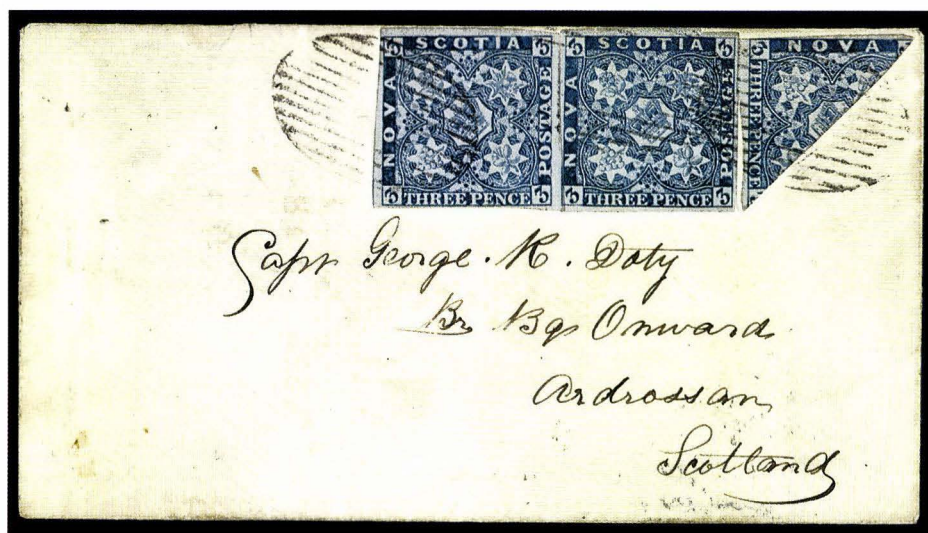 3 SCOTIA 3
NOVA
POSTAGE
3 THREE PENCE 3
3 SCOTIA 3
NOVA
POSTAGE
3 THREE PENCE 3
3 NOVA
THREE PENCE
3
Capt George . R . Doty
Br Bq Onward
Ardrossan
Scotland